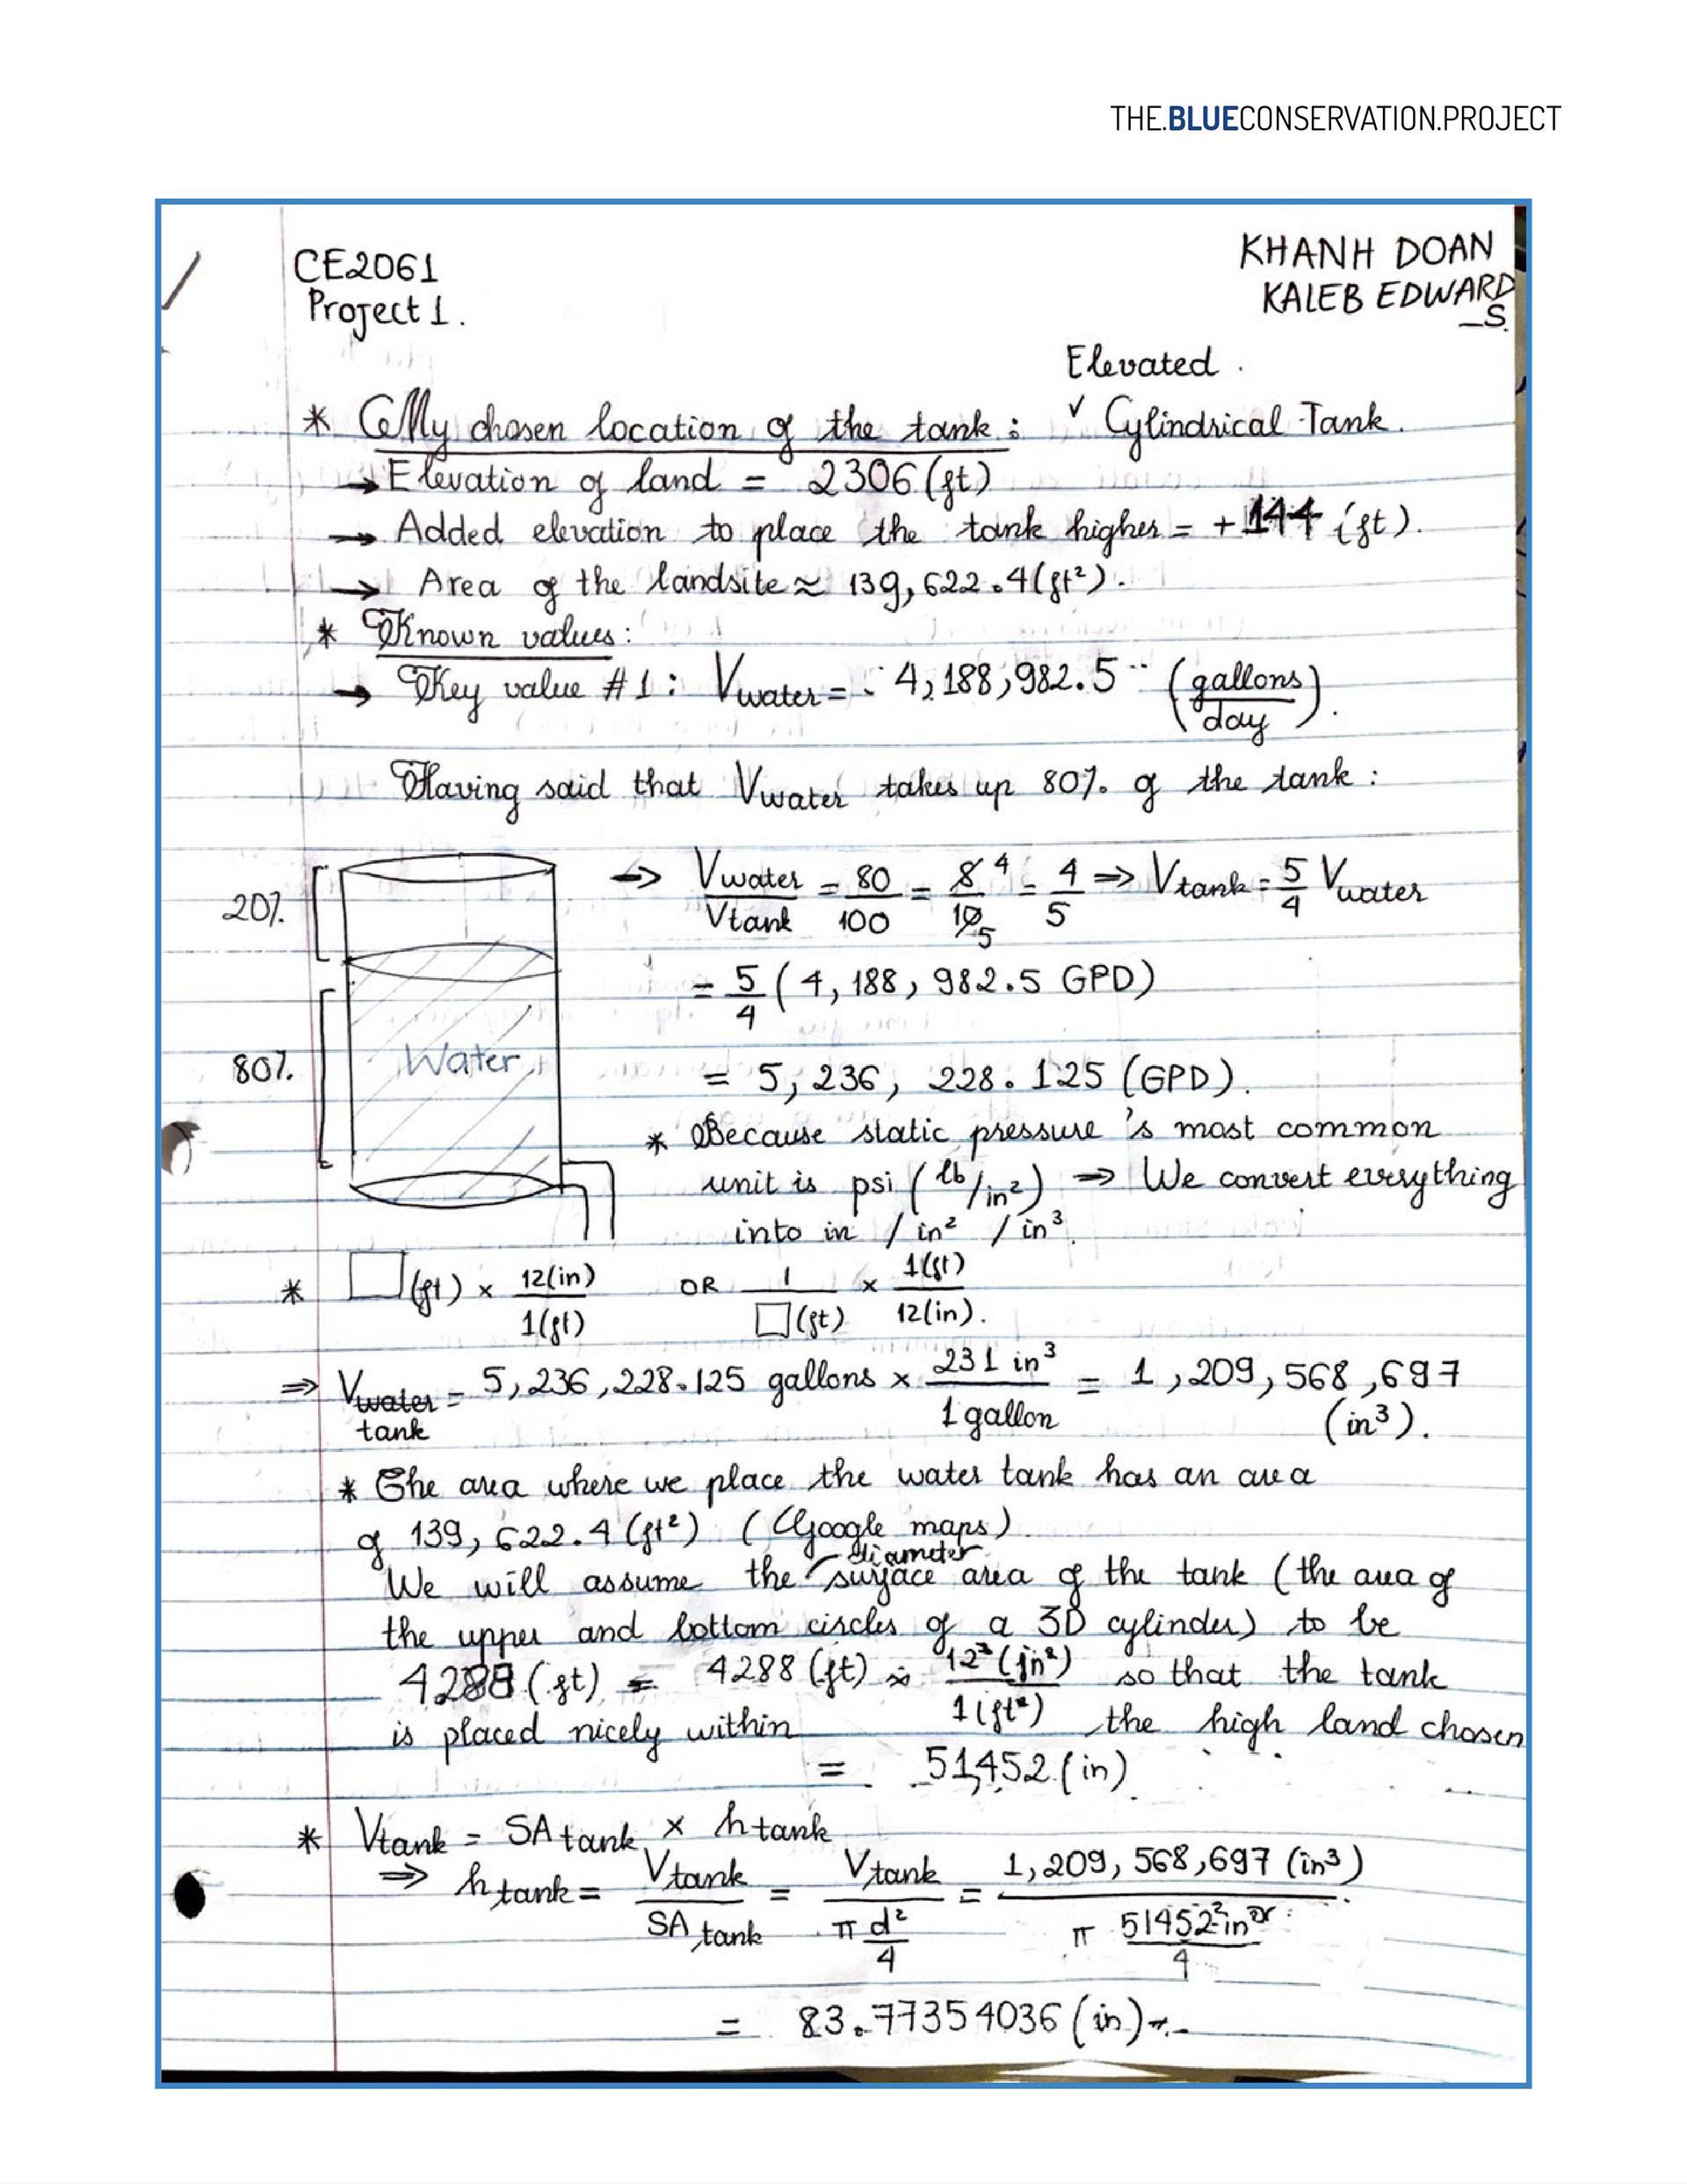 THE.BLUECONSERVATION.PROJECT
CE2061
Project 1.
KHANH DOAN
KALEB EDWARD
_S.
Elevated.
* My chosen location of the tank: ✓ Cylindrical Tank.
→ Elevation of land = 2306 (ft)
→ Added elevation to place the tank higher = + 144 (ft).
→ Area of the landsite ≈ 139,622.4 (ft²).
* Known values:
→ Key value #1: Vwater = 4,188,982.5 (gallons/day).
Having said that Vwater takes up 80% of the tank:
20%
80%
Water
⇒ Vwater/Vtank = 80/100 = 8/10 = 4/5 ⇒ Vtank = 5/4 Vwater
= 5/4 (4,188,982.5 GPD)
= 5,236,228.125 (GPD).
* Because static pressure's most common
unit is psi (lb/in²) ⇒ We convert everything
into in / in² / in³.
* □ (ft) × 12(in)/1(ft) OR 1/□(ft) × 1(ft)/12(in).
⇒ Vwater tank = 5,236,228.125 gallons × 231 in³/1 gallon = 1,209,568,697
(in³).
* The area where we place the water tank has an area
of 139,622.4 (ft²) (Google maps)
diameter
We will assume the surface area of the tank (the area of
the upper and bottom circles of a 3D cylinder) to be
4288 (ft) = 4288 (ft) × 12² (in²)/1 (ft²) so that the tank
is placed nicely within the high land chosen
= 51,452 (in).
* Vtank = SA tank × h tank
⇒ h tank = Vtank/SA tank = Vtank/π d²/4 = 1,209,568,697 (in³)/π 51452² in²/4
= 83.77354036 (in)